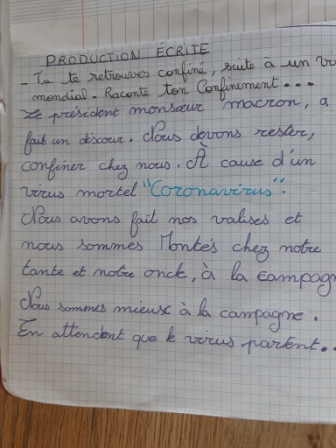 PRODUCTION ÉCRITE
- Tu te retrouves confiné, suite à un vi
mondial. Raconte ton Confinement...
Le président monsieur macron, a
fait un discour. Nous devons rester,
confiner chez nous. À cause d'un
virus mortel "Coronavirus".
Nous avons fait nos valises et
nous sommes Montés chez notre
tante et notre oncle, à la campagn
Nous sommes mieux à la campagne.
En attendent que le virus partent...